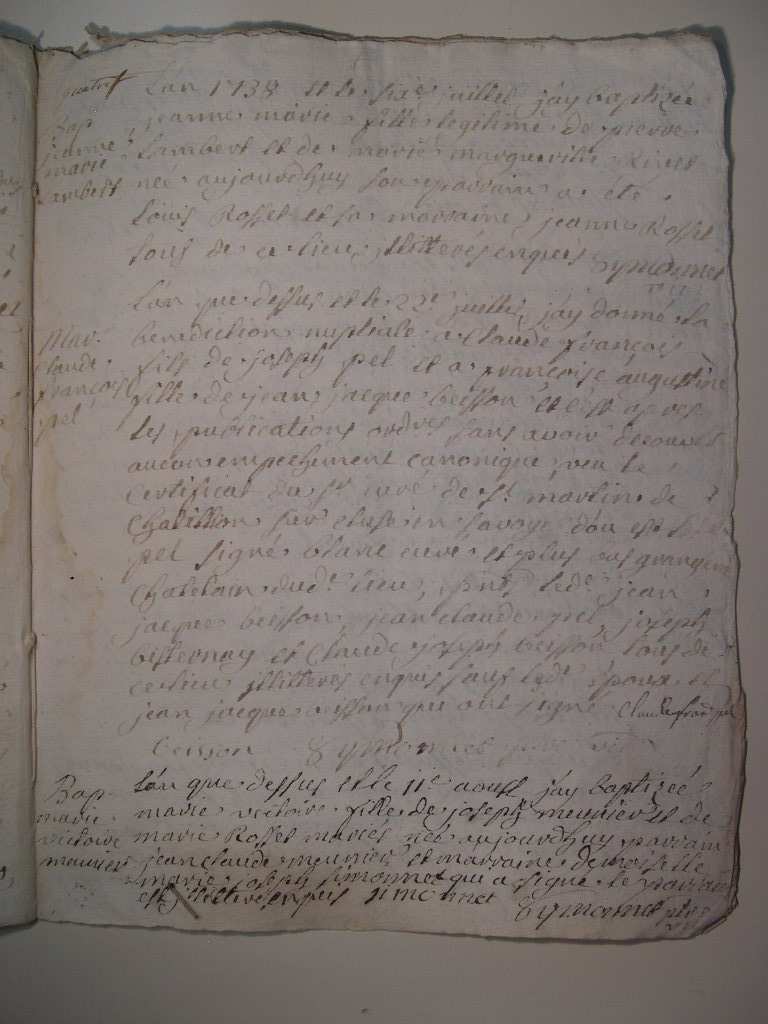 quatre
L'an 1738 et le sixe juillet j'ay baptizée
Bap
jeanne marie fille legitime de pierre
jeanne
Lambert et de marie marguerite
marie
neé aujourdhuy son parrain a été
Lambert
Louis Rosset et sa marraine jeanne Rosset
tous de ce lieu illitterés enquis Symonnet
L'an que dessus et le 22e juillet j'ay donné la
Mar.
benediction nuptiale a Claude françois
Claude
fils de joseph pel et a francoise augustine
françois
fille de jean jacque beisson et c'est apres
pel
les publications ordres sans avoir decouvert
aucun empechement canonique, veu le
certificat du sr curé de st martin de
Chatillion sur cluse en savoye d'ou est led
pel signé blanc curé et plus bas
Chatelain dudt lieu, pnts ledt jean
jacque beisson, jean claude pel, joseph
et Claude joseph beisson tous de
ce lieu illitteres enquis sauf ledt époux et
jean jacque beisson qui ont signé Claude fran pel
beisson Symonnet
L'an que dessus et le 11e aoust j'ay baptizeé
Bap
marie victoire fille de joseph meunier et de
marie
marie Rosset mareet neé aujourdhuy parrain
victoire
jean claude meunier et marraine demoiselle
meunier
marie joseph simonnet qui a signé le parrain
est illitteré enquis simonnet Symonnet ptre